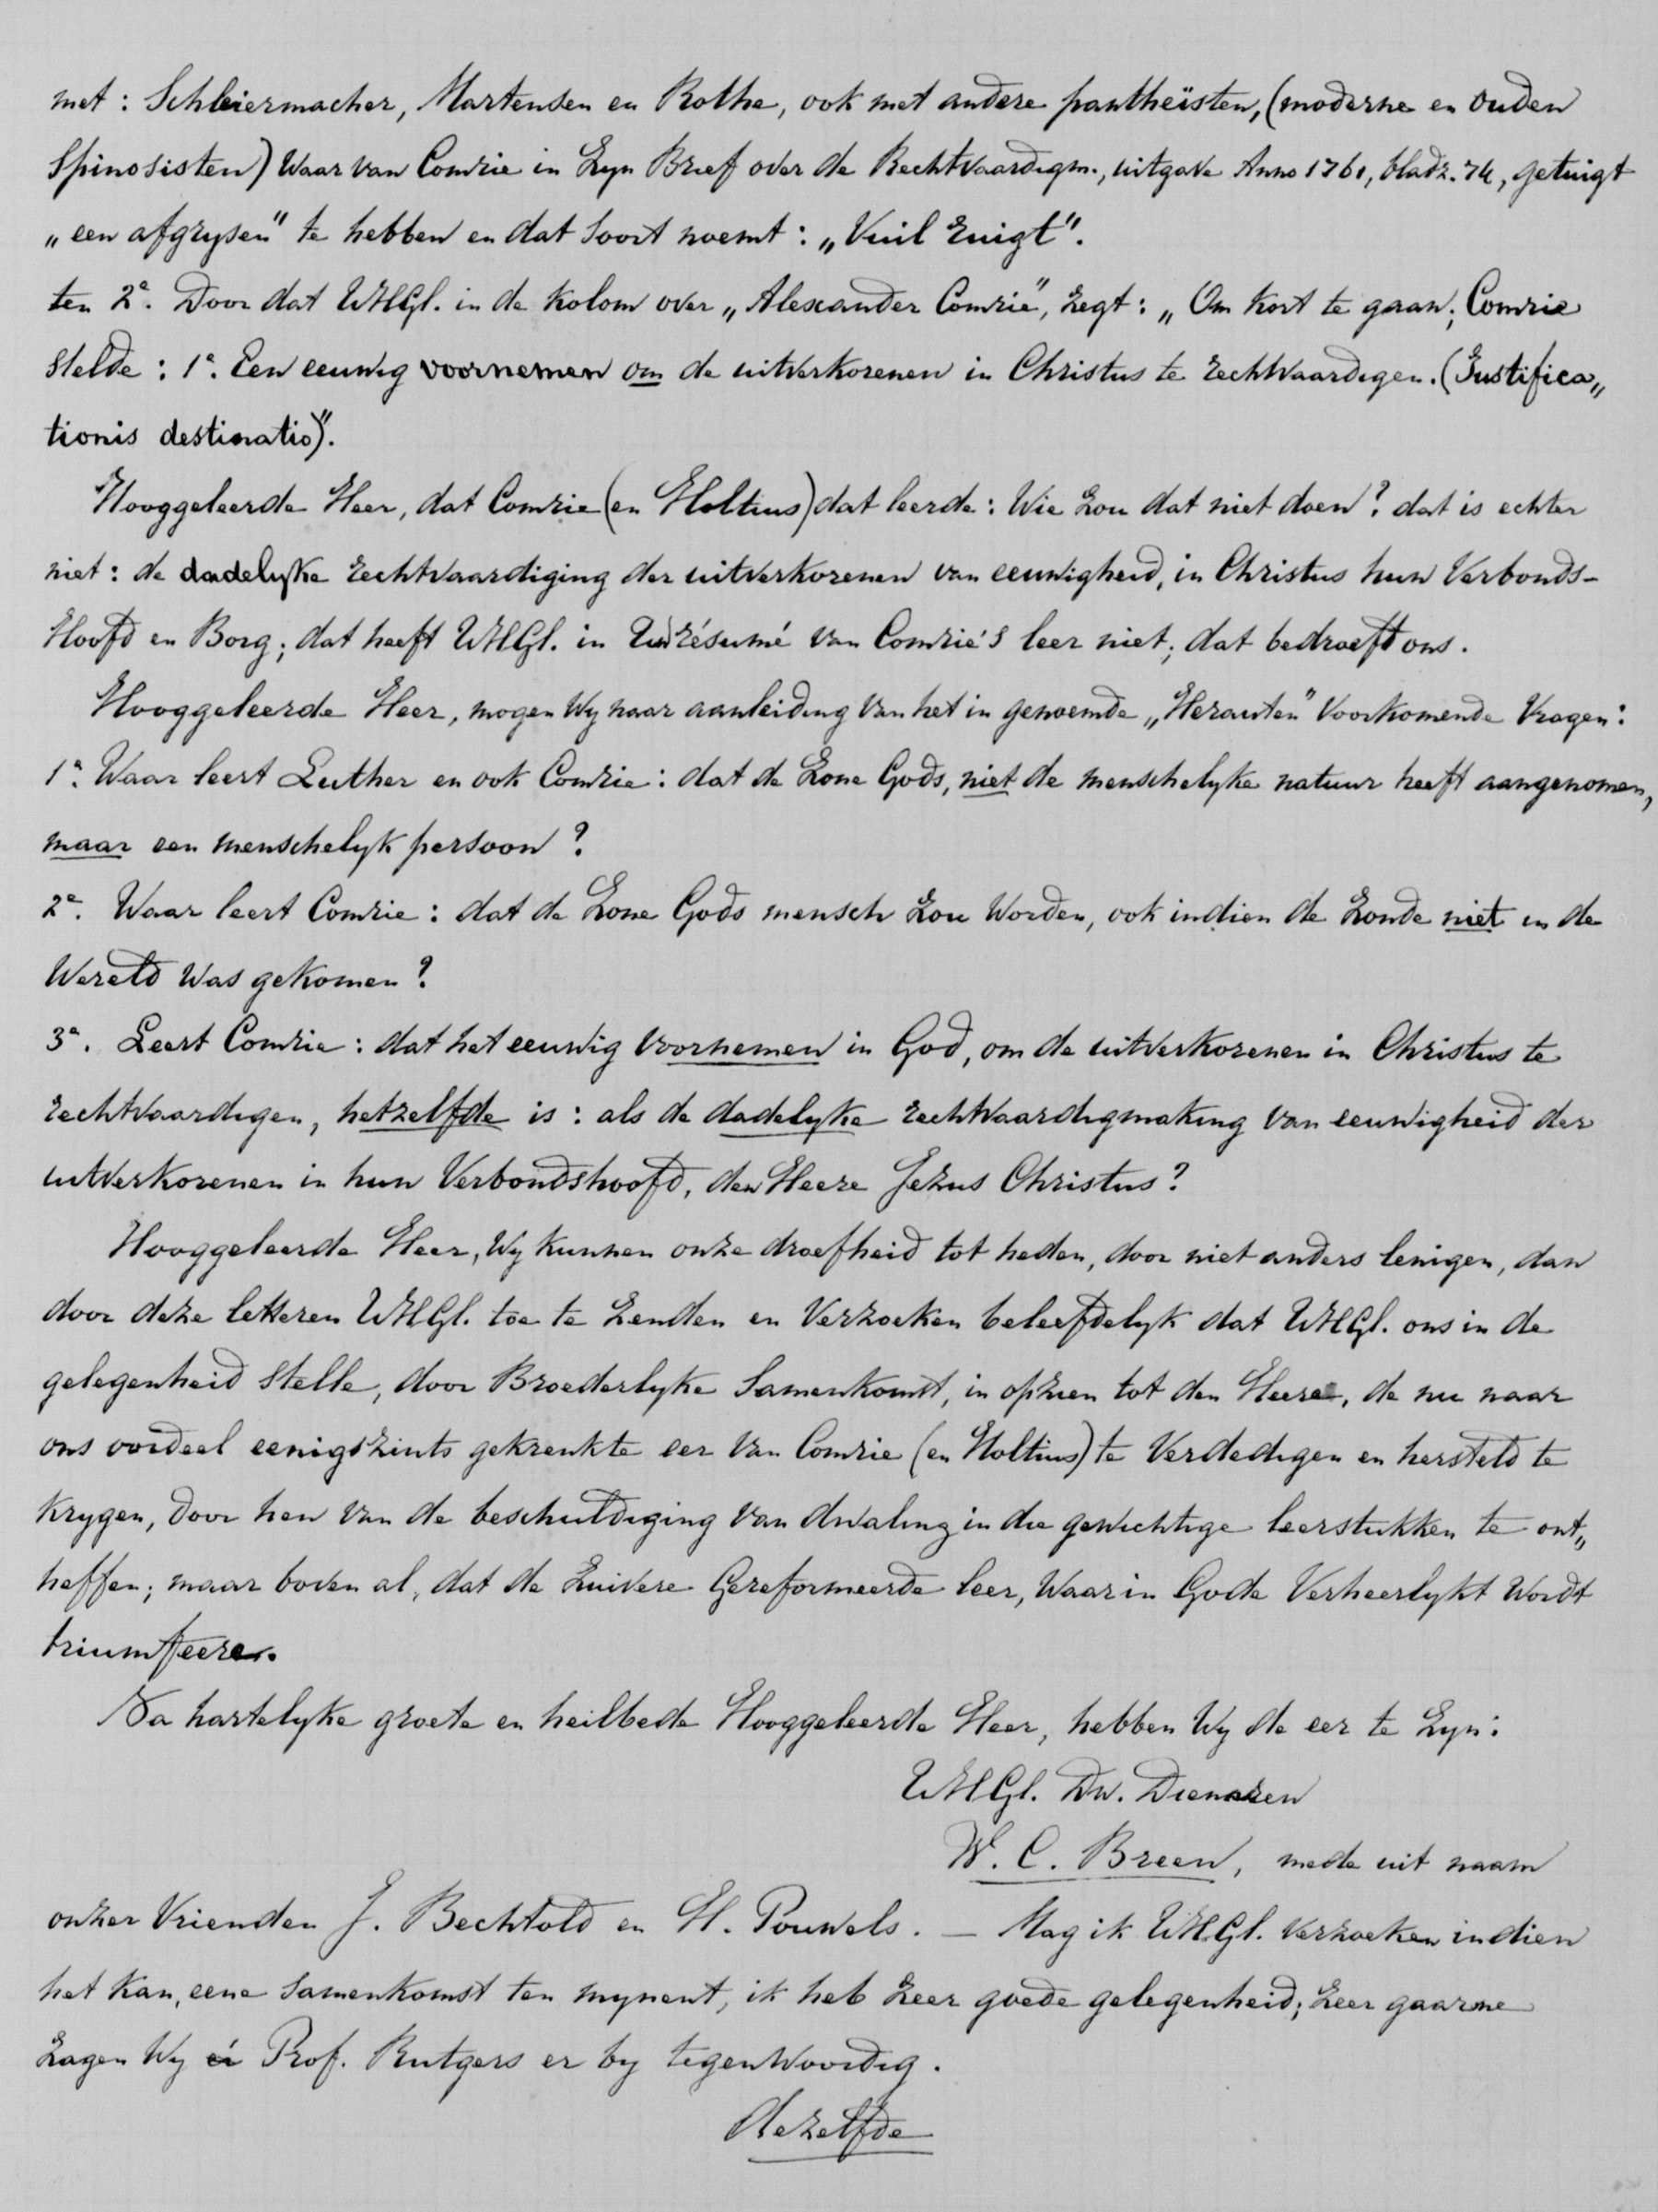 met: Schleiermacher, Martensen en Rothe, ook met andere pantheïsten, (moderne en ouden
Spinosisten) waar van Comrie in zyn Brief over de Rechtvaardigm., uitgave Anno 1761, bladz. 74, getuigt
„een afgrysen" te hebben en dat soort noemt: „Vuil Tuigt".
ten 2e. Door dat UHGl. in de Kolom over „Alexander Comrie", zegt: „Om kort te gaan; Comrie
stelde: 1e. Een eeuwig voornemen om de uitverkorenen in Christus te rechtvaardigen. (Justifica„
tionis destinatio)".
Hooggeleerde Heer, dat Comrie (en Holtius) dat leerde: Wie zou dat niet doen? dat is echter
niet: de dadelyke rechtvaardiging der uitverkorenen van eeuwigheid, in Christus hun Verbonds-
Hoofd en Borg; dat heeft UHGl. in Uw résumé van Comrie's leer niet; dat bedroeft ons.
Hooggeleerde Heer, mogen wy naar aanleiding van het in genoemde „Herauten" voorkomende vragen:
1e. Waar leert Luther en ook Comrie: dat de Zone Gods, niet de menschelyke natuur heeft aangenomen,
maar een menschelyk persoon?
2e. Waar leert Comrie: dat de Zone Gods mensch zou worden, ook indien de zonde niet in de
Wereld was gekomen?
3e. Leert Comrie: dat het eeuwig voornemen in God, om de uitverkorenen in Christus te
rechtvaardigen, hetzelfde is: als de dadelyke rechtvaardigmaking van eeuwigheid der
uitverkorenen in hun Verbondshoofd, den Heere Jezus Christus?
Hooggeleerde Heer, wy kunnen onze droefheid tot heden, door niet anders lenigen, dan
door deze letteren UHGl. toe te zenden en verzoeken beleefdelyk dat UHGl. ons in de
gelegenheid stelle, door Broederlyke samenkomst, in opzien tot den Heere, de nu naar
ons oordeel eenigszints gekrenkte eer van Comrie (en Holtius) te verdedigen en hersteld te
krygen, door hen van de beschuldiging van dwaling in die gewichtige leerstukken te ont„
heffen; maar boven al, dat de zuivere Gereformeerde leer, waarin Gode verheerlykt wordt
triumfeere.
Na hartelyke groete en heilbede Hooggeleerde Heer, hebben wy de eer te zyn:
UHGl. Dw. Dienaren
W. C. Breen, mede uit naam
onzer vrienden J. Bechtold en H. Pouwels. — Mag ik UHGl. verzoeken indien
het kan, eene samenkomst ten mynent, ik heb zeer goede gelegenheid; zeer gaarne
zagen wy Prof. Rutgers er by tegenwoordig.
dezelfde